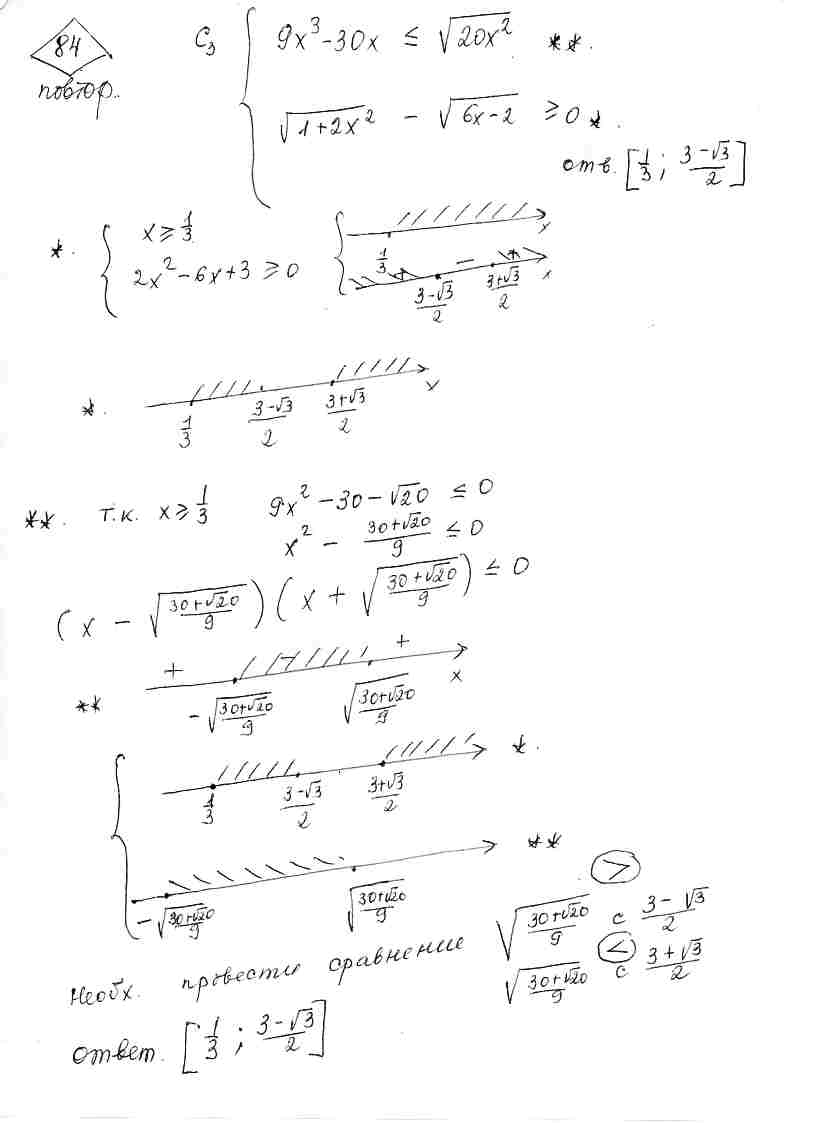 84
повтор..
C₃ { 9x³ - 30x ≤ √(20x²) **.
√(1+2x²) - √(6x-2) ≥ 0 *.
отв. [1/3 ; (3-√3)/2]
*. { x ≥ 1/3
2x² - 6x + 3 ≥ 0
x
1/3 + - + x
(3-√3)/2 (3+√3)/2
*. 1/3 (3-√3)/2 (3+√3)/2 x
**. т.к. x ≥ 1/3 9x² - 30 - √20 ≤ 0
x² - (30+√20)/9 ≤ 0
(x - √((30+√20)/9)) (x + √((30+√20)/9)) ≤ 0
+ - + x
** -√((30+√20)/9) √((30+√20)/9)
{ *.
1/3 (3-√3)/2 (3+√3)/2
**
-√((30+√20)/9) √((30+√20)/9)
>
Необх. провести сравнение √((30+√20)/9) с (3-√3)/2
<
√((30+√20)/9) с (3+√3)/2
ответ. [1/3 ; (3-√3)/2]